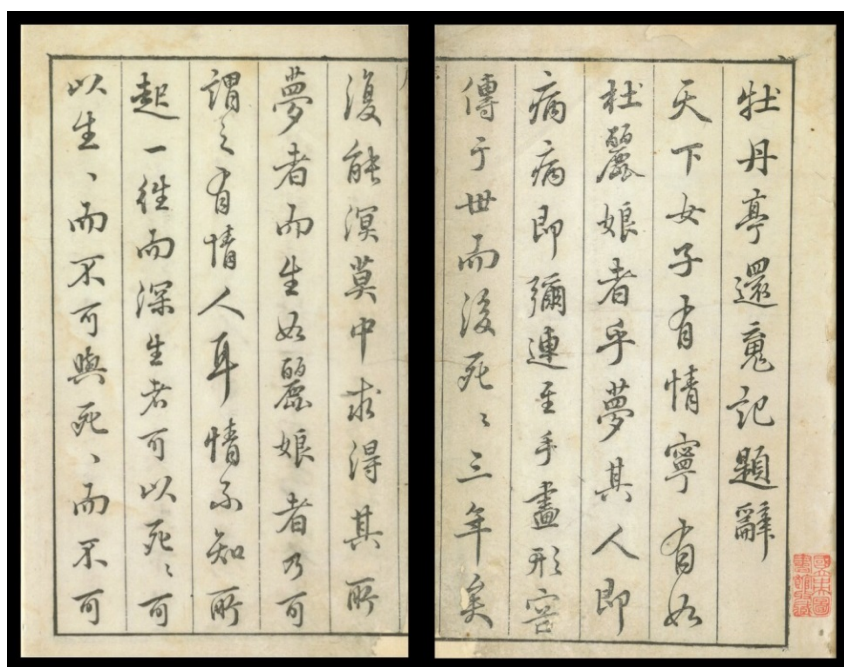 牡丹亭還魂記題辭
天下女子有情寧有如
杜麗娘者乎夢其人即
病病即彌連至手畫形容
傳于世而後死〻三年矣
復能溟莫中求得其所
夢者而生如麗娘者乃可
謂之有情人耳情不知所
起一往而深生者可以死〻可
以生〻而不可與死〻而不可